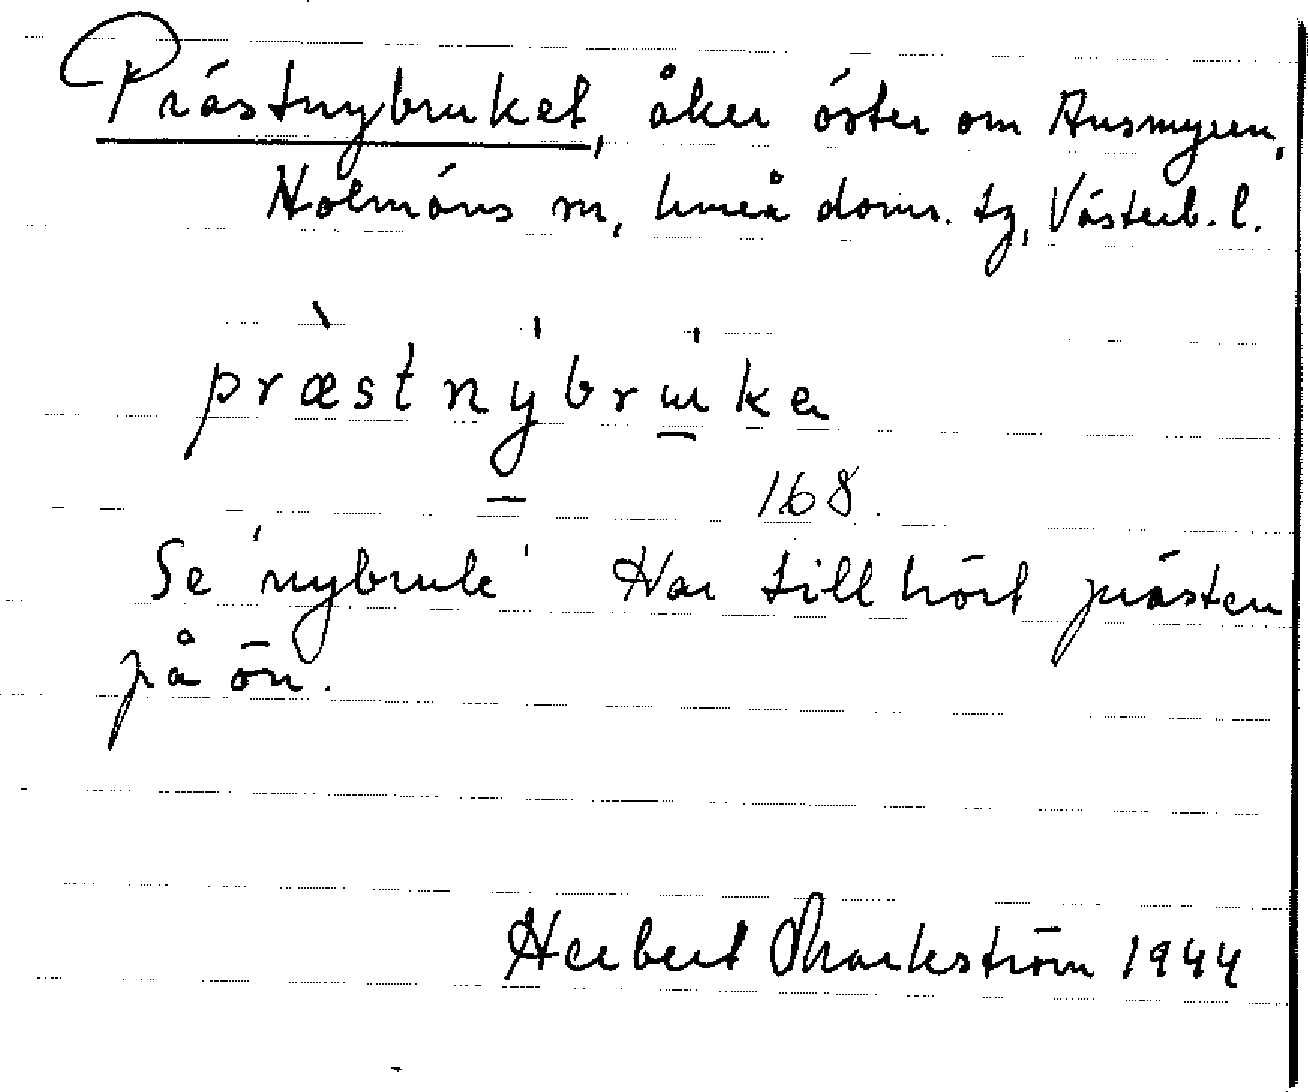 Prästnybruket, åker öster om Ansmyren,
Holmöns sn, Umeå doms. tg, Västerb. l.
præstnybruka
168.
Se 'nybruk' Har tillhört prästen
på ön.
Herbert Markström 1944